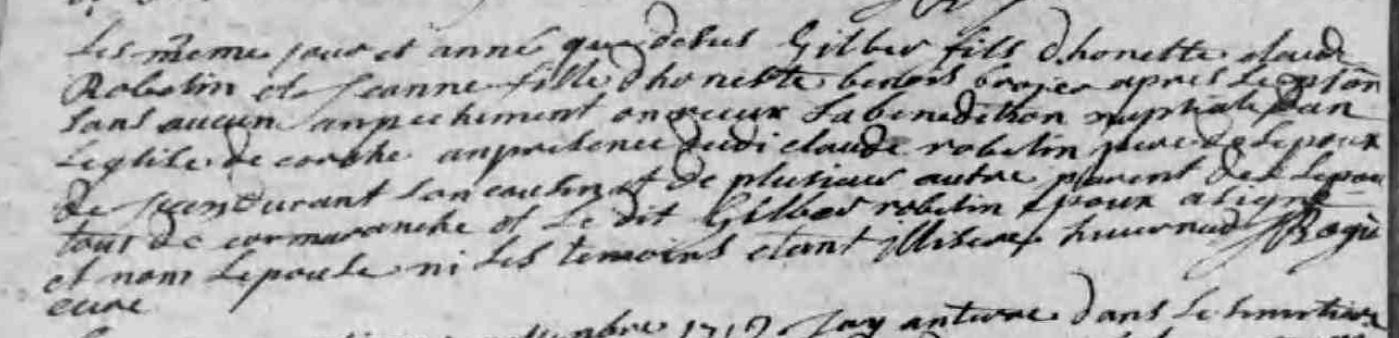 Les même jour et anné que desus Gilber fils dhonette claude
Robelin et Jeanne fille dhonette benois apres
sans aucun anpechiment on reeux la benediction nuptiale dan
Leglise de corbhe anpresence dudi claude robelin pere de Lepoux
de Jean durant son cousin et de plusieur autre parent des Lepou
tout de cormaranche et Le dit Gilber robelin epoux a signe
et nom Lepouse ni Les temoins etant illitere
cure
1712 Jay anterre dans Le simetiere